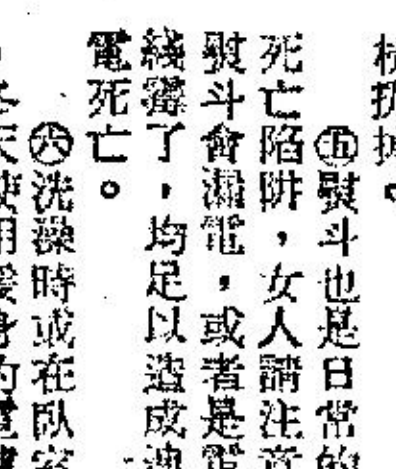 扔掉。
㊄熨斗也是日常的
死亡陷阱，女人請注意
熨斗會漏電，或者是電
了，均足以造成
電死亡。
㊅洗澡時或在臥室
冬天使用